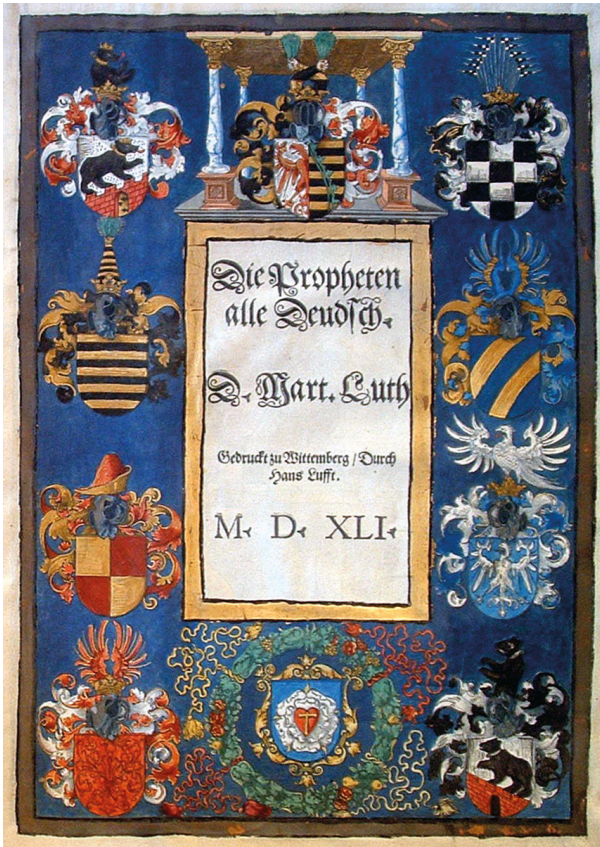 Die Propheten
alle Deudsch.
D. Mart. Luth
Gedruckt zu Wittemberg / Durch
Hans Lufft.
M. D. XLI.